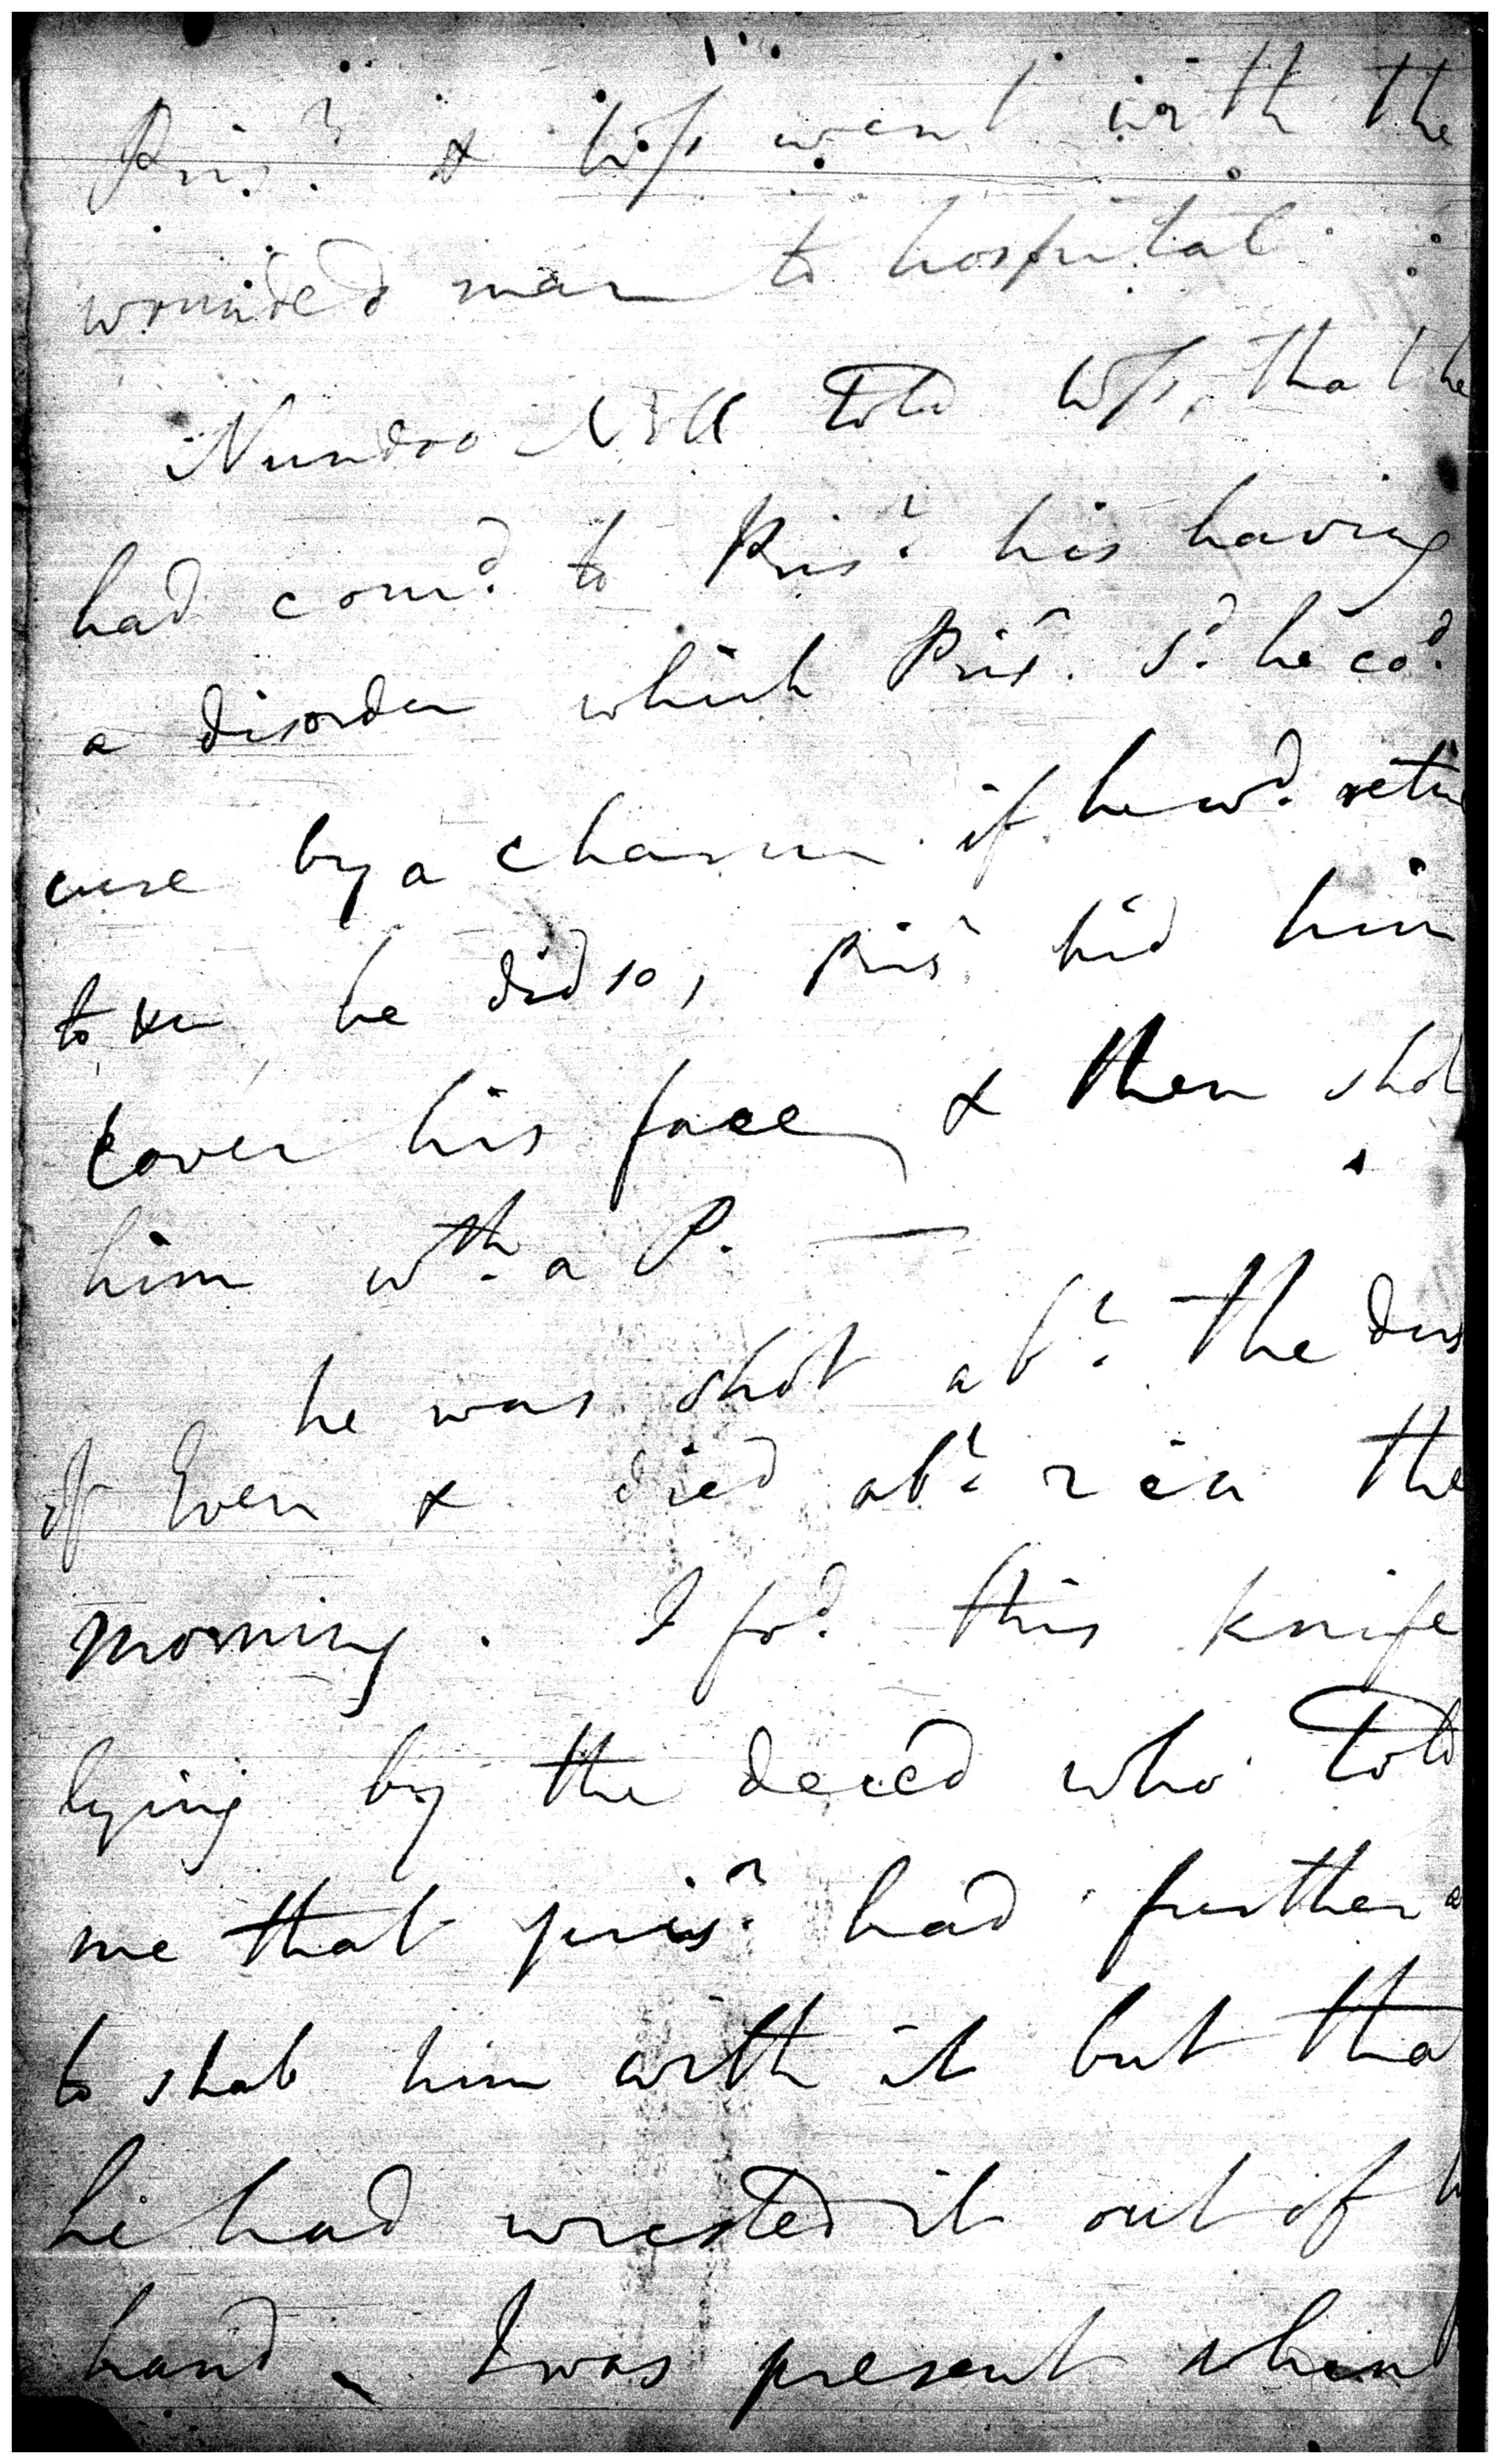 Pris.r & Wss went with the
wounded man to hospital
Nundoo told Wss, that he
had com.d to Pris.r his having
a disorder which Pris.r s.d he co.d
cure by a charm if he w.d retu
to he did so, Pris.r bid him
cover his face & then shot
him w.th a P. —
he was shot ab.t the dus
of Even & died ab.t 2 in the
morning. I fo.d this knife
lying by the deced who told
me that pris.r had further a
to stab him with it but tha
he had wrested it out of h
hand I was present when